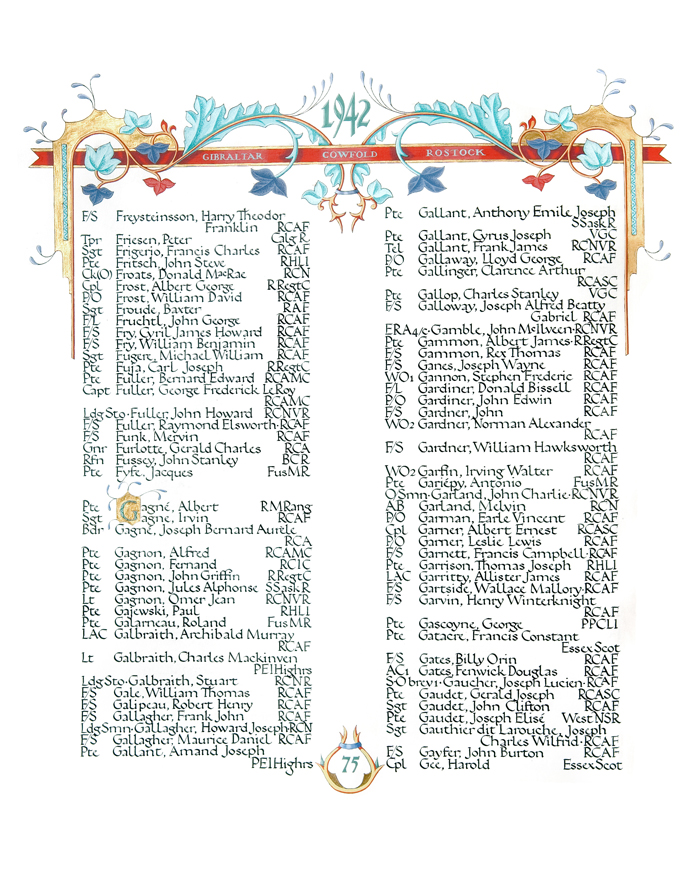 1942
GIBRALTAR COWFOLD ROSTOCK
F/S Freysteinsson, Harry Theodor
Franklin RCAF
Tpr Friesen, Peter Calg R.
Sgt Frigerio, Francis Charles RCAF
Pte Fritsch, John Steve RHLI
Ck(O) Froats, Donald MacRae RCN
Cpl Frost, Albert George RRegtC
P/O Frost, William David RCAF
Sgt Froude, Baxter RAF
F/L Fruchtl, John George RCAF
F/S Fry, Cyril James Howard RCAF
F/S Fry, William Benjamin RCAF
Sgt Fugere, Michael William RCAF
Pte Fuja, Carl Joseph RRegtC
Pte Fuller, Bernard Edward RCAMC
Capt Fuller, George Frederick LeRoy
RCAMC
LdgSto·Fuller, John Howard RCNVR
F/S Fuller, Raymond Elsworth·RCAF
F/S Funk, Mervin RCAF
Gnr Furlotte, Gerald Charles RCA
Rfn Fussey, John Stanley BCR
Pte Fyfe, Jacques FusMR
Pte Gagné, Albert RMRang
Sgt Gagne, Irvin RCAF
Bdr Gagné, Joseph Bernard Aurèle
RCA
Pte Gagnon, Alfred RCAMC
Pte Gagnon, Fernand RCIC
Pte Gagnon, John Griffin RRegtC
Pte Gagnon, Jules Alphonse SSaskR
Lt Gagnon, Omer Jean RCNVR
Pte Gajewski, Paul RHLI
Pte Galarneau, Roland FusMR
LAC Galbraith, Archibald Murray
RCAF
Lt Galbraith, Charles Mackinven
PEIHighrs
LdgSto·Galbraith, Stuart RCNR
F/S Gale, William Thomas RCAF
F/S Galipeau, Robert Henry RCAF
F/S Gallagher, Frank John RCAF
LdgSmn·Gallagher, Howard Joseph·RCN
F/S Gallagher, Maurice Daniel RCAF
Pte Gallant, Amand Joseph
PEIHighrs
Pte Gallant, Anthony Emile Joseph
SSaskR
Pte Gallant, Cyrus Joseph VGC
Tel Gallant, Frank James RCNVR
P/O Gallaway, Lloyd George RCAF
Pte Gallinger, Clarence Arthur
RCASC
Pte Gallop, Charles Stanley VGC
F/S Galloway, Joseph Alfred Beatty
Gabriel RCAF
ERA4/c·Gamble, John McIlveen·RCNVR
Pte Gammon, Albert James·RRegtC
F/S Gammon, Rex Thomas RCAF
F/S Ganes, Joseph Wayne RCAF
WO1 Gannon, Stephen Frederic RCAF
F/L Gardiner, Donald Bissell RCAF
P/O Gardiner, John Edwin RCAF
F/S Gardner, John RCAF
WO2 Gardner, Norman Alexander
RCAF
F/S Gardner, William Hawksworth
RCAF
WO2 Garfin, Irving Walter RCAF
Pte Gariépy, Antonio FusMR
OSmn·Garland, John Charlie·RCNVR
AB Garland, Melvin RCN
P/O Garman, Earle Vincent RCAF
Cpl Garner, Albert Ernest RCASC
P/O Garner, Leslie Lewis RCAF
F/S Garnett, Francis Campbell·RCAF
Pte Garrison, Thomas Joseph RHLI
LAC Garritty, Allister James RCAF
F/S Gartside, Wallace Mallory·RCAF
F/S Garvin, Henry Winterknight
RCAF
Pte Gascoyne, George PPCLI
Pte Gatacre, Francis Constant
EssexScot
F/S Gates, Billy Orin RCAF
AC1 Gates, Fenwick Douglas RCAF
S·Obrev1·Gaucher, Joseph Lucien·RCAF
Pte Gaudet, Gerald Joseph RCASC
Sgt Gaudet, John Clifton RCAF
Pte Gaudet, Joseph Elisé WestNSR
Sgt Gauthier dit Larouche, Joseph
Charles Wilfrid·RCAF
F/S Gayfer, John Burton RCAF
Cpl Gee, Harold EssexScot
75